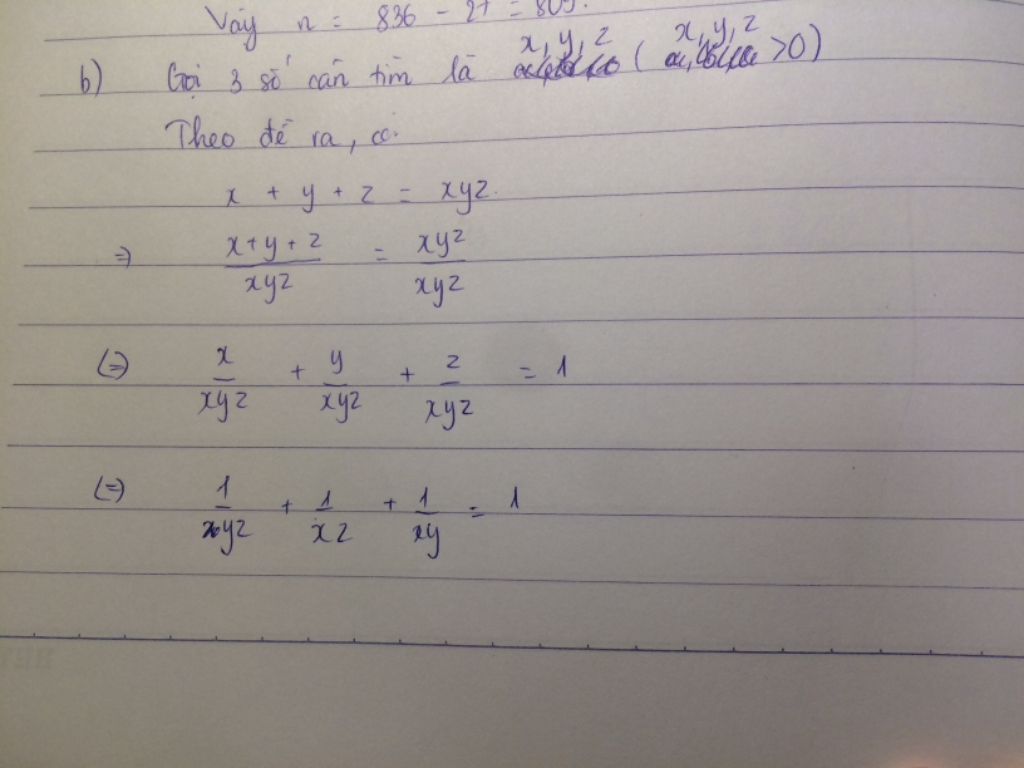 Vậy n = 836 - 27 = 809.
b) Gọi 3 số cần tìm là x, y, z ( x, y, z >0)
Theo đề ra, có:
x + y + z = xyz.
=> x+y+z/xyz = xyz/xyz
(=) x/xyz + y/xyz + z/xyz = 1
(=) 1/yz + 1/xz + 1/xy = 1